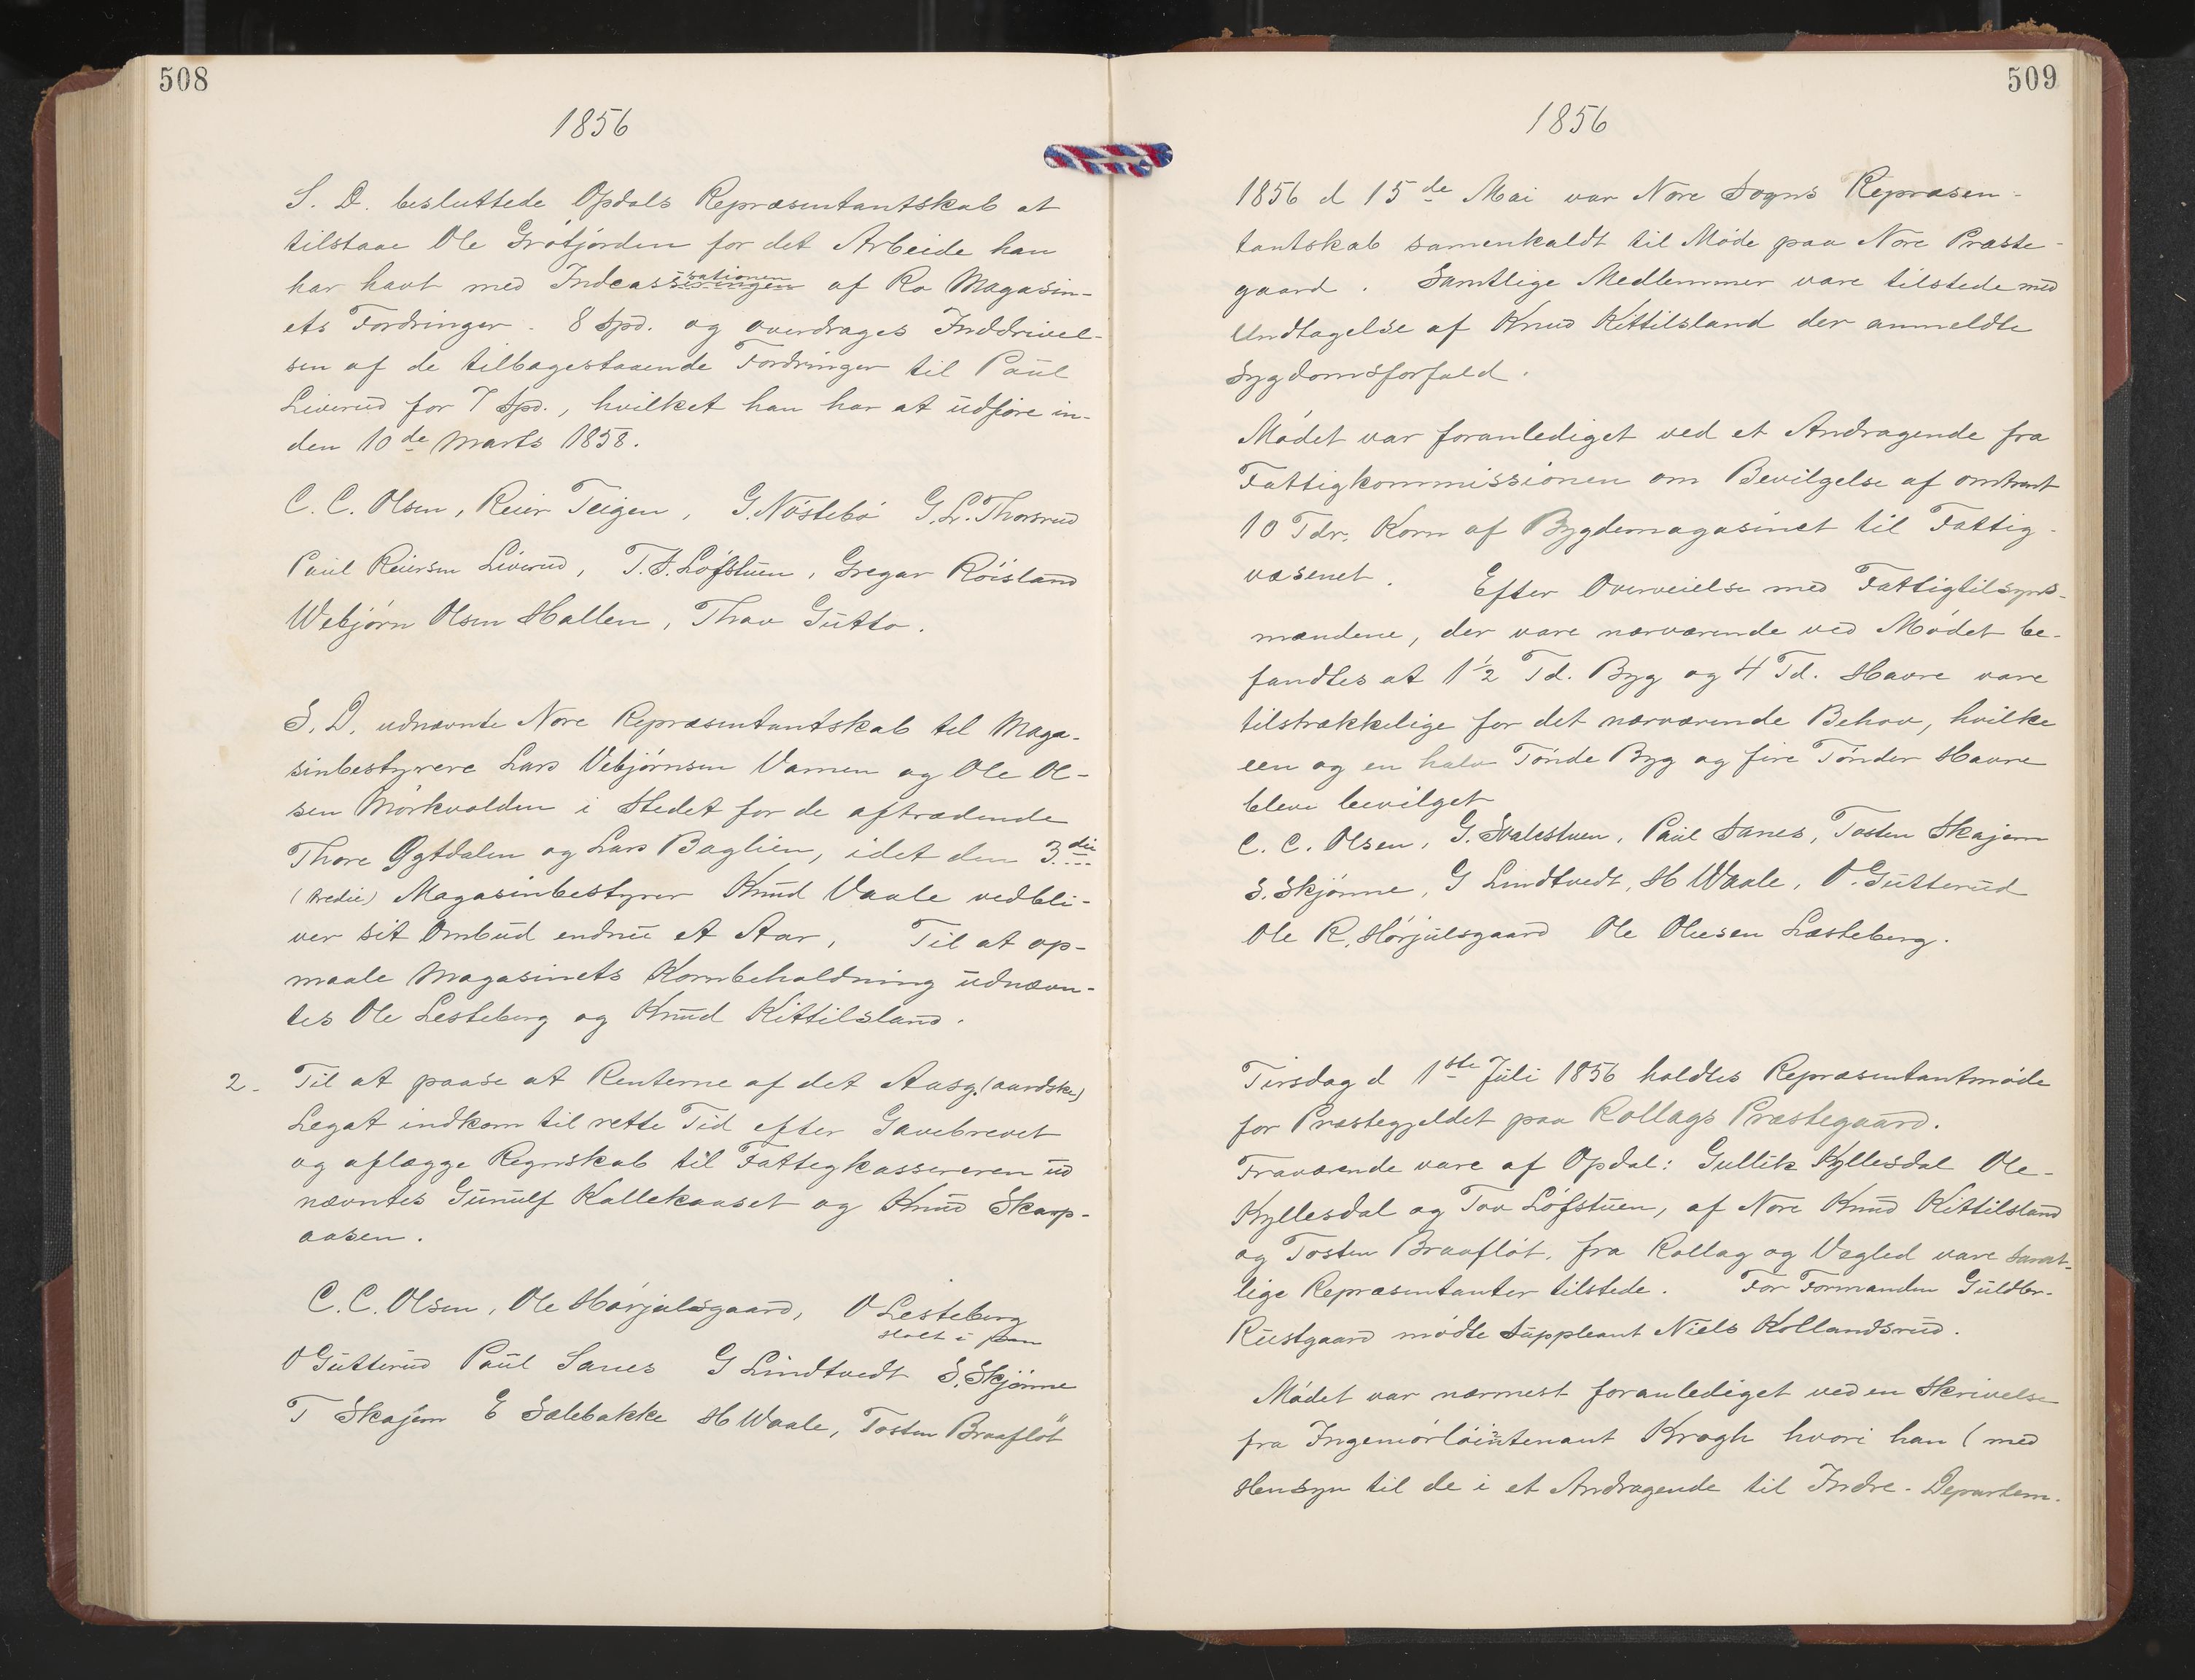 508
1856
S. D. besluttede Opdals Repræsentantskab at
tilstaae Ole Grøtjorden for det Arbeide han
har havt med Indcasseringen sationen af Ro Magasin-
ets Fordringer. 8 Spd. og overdrages Inddrivel-
sen af de tilbagestaaende Fordringer til Paul
Liverud for 7 Spd., hvilket han har at udføre in-
den 10de Marts 1858.
C. C. Olsen, Reier Teigen, G. Nøstebø G. L. Thorsrud
Paul Reiersen Liverud, T. T. Løfstuen, Gregar Røisland
Webjørn Olsen Hallen, Thov Gutto.
S. D. udnævnte Nore Repræsentantskab til Maga-
sinbestyrere Lars Vebjørnsen Vamen og Ole Ol-
sen Mørkvolden i Stedet for de aftrædende
Thore Øgtdalen og Lars Baglien, idet den 3die
(tredie) Magasinbestyrer Knud Vaale vedbli-
ver sit Ombud endnu et Aar. Til at op-
maale Magasinets Kornbeholdning udnævn-
tes Ole Lesteberg og Knud Kittilsland.
2. Til at paase at Renterne af det Aasg. (aardske)
Legat indkom til rette Tid efter Gavebrevet
og aflægge Regnskab til Fattigkassereren ud
nævntes Gunulf Kallekaaset og Knud Skarp-
aasen.
C. C. Olsen, Ole Hørjulsgaard, O Lesteberg
Holt i pen
O Gutterud Paul Sanes G Lindtvedt S. Skjønne
T Skajem E Sælebakke H Waale, Tosten Braafløt
509
1856
1856 d 15de Mai var Nore Sogns Repræsen-
tantskab samenkaldt til Møde paa Nore Præste-
gaard. Samtlige Medlemmer vare tilstede med
Undtagelse af Knud Kittilsland der anmeldte
Sygdomsforfald.
Mødet var foranlediget ved et Andragende fra
Fattigkommissionen om Bevilgelse af omtrent
10 Tdr. Korn af Bygdemagasinet til Fattig-
væsenet. Efter Overveielse med Fattigtilsyns-
mændene, der vare nærværende ved Mødet be-
fandtes at 1 1/2 Td. Byg og 4 Td. Havre vare
tilstrækkelige for det nærværende Behov, hvilke
een og en halv Tønde Byg og fire Tønder Havre
bleve bevilget
C. C. Olsen, G. Svalestuen, Paul Sanes, Tosten Skajem
S. Skjønne, G Lindtvedt, H Waale, O. Gutterud
Ole R. Hørjulsgaard Ole Olesen Læsteberg.
Tirsdag d 1ste Juli 1856 holdtes Repræsentantmøde
for Præstegjeldet paa Rollags Præstegaard.
Fraværende vare af Opdal: Gullik Kyllesdal Ole
Kyllesdal og Tov Løfstuen, af Nore Knud Kittilsland
og Tosten Braafløt. fra Rollag og Vegled vare samt-
lige Repræsentanter tilstede. For Formanden Guldbr.
Rustgaard mødte Suppleant Niels Kollandsrud.
Mødet var nærmest foranlediget ved en Skrivelse
fra Ingeniørløintenant Krogh hvori han (med
Hensyn til de i et Andragende til Indre-Departem.